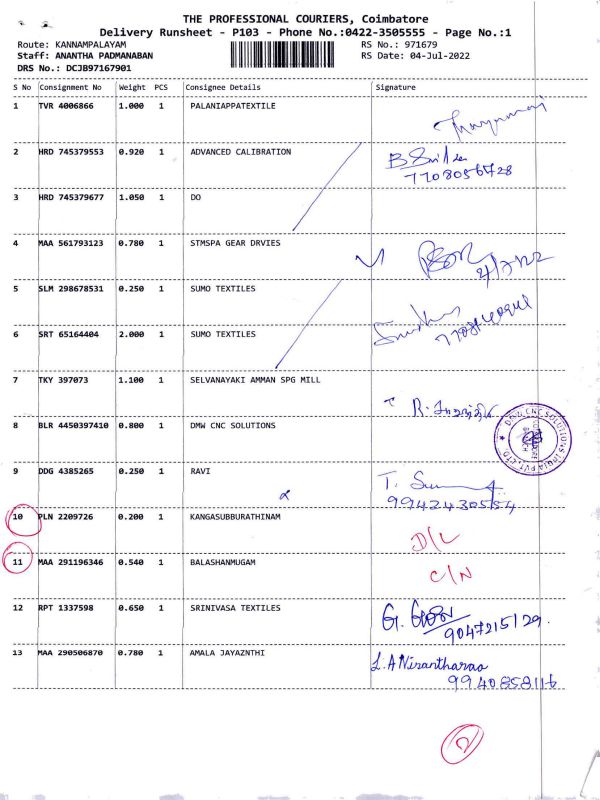 THE PROFESSIONAL COURIERS, Coimbatore
Delivery Runsheet - P103 - Phone No.:0422-3505555 - Page No.:1
Route: KANNAMPALAYAM RS No.: 971679
Staff: ANANTHA PADMANABAN RS Date: 04-Jul-2022
DRS No.: DCJB97167901
S No Consignment No Weight PCS Consignee Details Signature
1 TVR 4006866 1.000 1 PALANIAPPATEXTILE
2 HRD 745379553 0.920 1 ADVANCED CALIBRATION
7708056728
3 HRD 745379677 1.050 1 DO
4 MAA 561793123 0.780 1 STMSPA GEAR DRVIES
4/7/22
5 SLM 298678531 0.250 1 SUMO TEXTILES
6 SRT 65164404 2.000 1 SUMO TEXTILES
7 TKY 397073 1.100 1 SELVANAYAKI AMMAN SPG MILL
8 BLR 4450397410 0.800 1 DMW CNC SOLUTIONS
DMW CNC SOLUTIONS INDIA PVT. LTD
9 DDG 4385265 0.250 1 RAVI
9942430554
10 PLN 2209726 0.200 1 KANGASUBBURATHINAM
D/L
11 MAA 291196346 0.540 1 BALASHANMUGAM
C/N
12 RPT 1337598 0.650 1 SRINIVASA TEXTILES
9047215129.
13 MAA 290506870 0.780 1 AMALA JAYAZNTHI
L.A Nirantharaa
9940858116
2